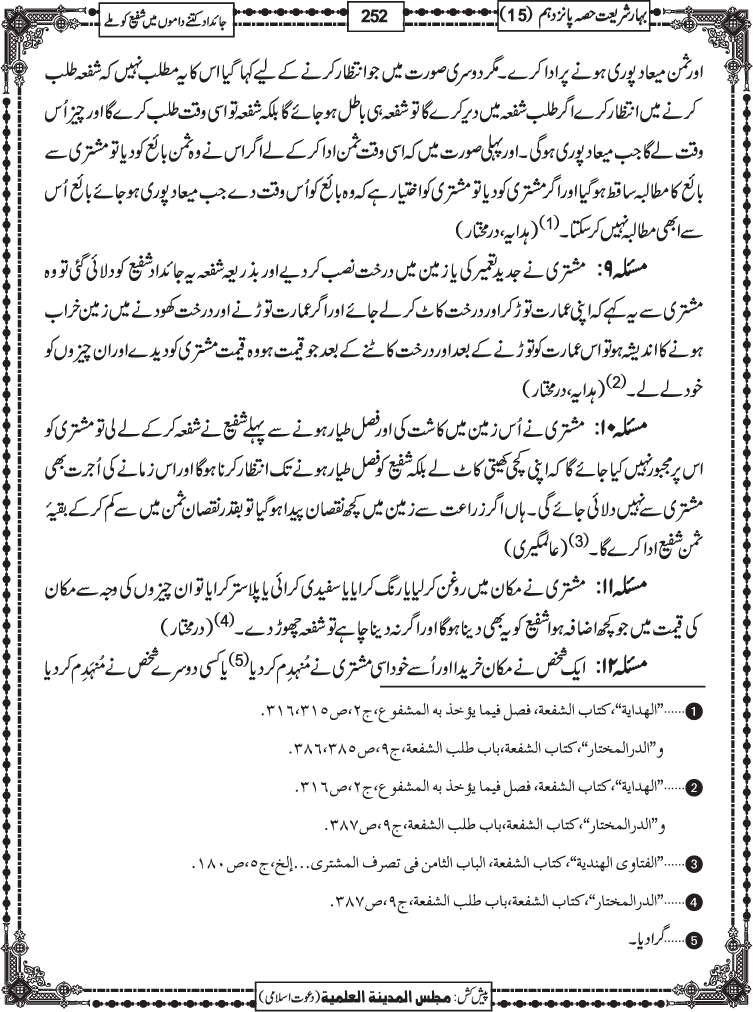 بہارِشریعت حصہ پانزدہم (15)
252
جائداد کتنے داموں میں شفیع کو ملے
اور ثمن میعاد پوری ہونے پر ادا کرے۔ مگر دوسری صورت میں جو انتظار کرنے کے لیے کہا گیا اس کا یہ مطلب نہیں کہ شفعہ طلب
کرنے میں انتظار کرے اگر طلب شفعہ میں دیر کرے گا تو شفعہ ہی باطل ہو جائے گا بلکہ شفعہ تو اسی وقت طلب کرے گا اور چیز اُس
وقت لے گا جب میعاد پوری ہوگی۔ اور پہلی صورت میں کہ اسی وقت ثمن ادا کر کے لے اگر اس نے وہ ثمن بائع کو دیا تو مشتری سے
بائع کا مطالبہ ساقط ہو گیا اور اگر مشتری کو دیا تو مشتری کو اختیار ہے کہ وہ بائع کو اُس وقت دے جب میعاد پوری ہو جائے بائع اُس
سے ابھی مطالبہ نہیں کر سکتا۔(1) (ہدایہ، درمختار)
مسئلہ ۹: مشتری نے جدید تعمیر کی یا زمین میں درخت نصب کر دیے اور بذریعہ شفعہ یہ جائداد شفیع کو دلائی گئی تو وہ
مشتری سے یہ کہے کہ اپنی عمارت توڑ کر اور درخت کاٹ کر لے جائے اور اگر عمارت توڑنے اور درخت کھودنے میں زمین خراب
ہونے کا اندیشہ ہو تو اس عمارت کو توڑنے کے بعد اور درخت کاٹنے کے بعد جو قیمت ہو وہ قیمت مشتری کو دیدے اور ان چیزوں کو
خود لے لے۔(2) (ہدایہ، درمختار)
مسئلہ ۱۰: مشتری نے اُس زمین میں کاشت کی اور فصل طیار ہونے سے پہلے شفیع نے شفعہ کر کے لے لی تو مشتری کو
اس پر مجبور نہیں کیا جائے گا کہ اپنی کچی کھیتی کاٹ لے بلکہ شفیع کو فصل طیار ہونے تک انتظار کرنا ہوگا اور اس زمانے کی اُجرت بھی
مشتری سے نہیں دلائی جائے گی۔ ہاں اگر زراعت سے زمین میں کچھ نقصان پیدا ہو گیا تو بقدر نقصان ثمن میں سے کم کر کے بقیۂ
ثمن شفیع ادا کرے گا۔(3) (عالمگیری)
مسئلہ ۱۱: مشتری نے مکان میں روغن کر لیا یا رنگ کرایا یا سفیدی کرائی یا پلاستر کرایا تو ان چیزوں کی وجہ سے مکان
کی قیمت میں جو کچھ اضافہ ہوا شفیع کو یہ بھی دینا ہوگا اور اگر نہ دینا چاہے تو شفعہ چھوڑ دے۔(4) (درمختار)
مسئلہ ۱۲: ایک شخص نے مکان خریدا اور اُسے خود اسی مشتری نے مُنہدم کر دیا(5) یا کسی دوسرے شخص نے مُنہَدِم کر دیا
1......”الهداية“،كتاب الشفعة، فصل فيما يؤخذ به المشفوع،ج٢،ص٣١٦،٣١٥.
و”الدرالمختار“،كتاب الشفعة،باب طلب الشفعة،ج٩،ص٣٨٦،٣٨٥.
2......”الهداية“،كتاب الشفعة، فصل فيما يؤخذ به المشفوع،ج٢،ص٣١٦.
و”الدرالمختار“،كتاب الشفعة،باب طلب الشفعة،ج٩،ص٣٨٧.
3......”الفتاوى الهندية“،كتاب الشفعة، الباب الثامن فى تصرف المشترى...إلخ،ج٥،ص١٨٠.
4......”الدرالمختار“،كتاب الشفعة،باب طلب الشفعة،ج٩،ص٣٨٧.
5......گرا دیا۔
پیش کش: مجلس المدينة العلمية (دعوت اسلامی)